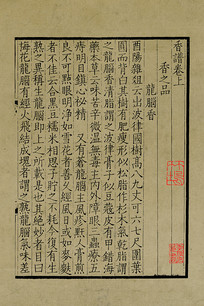 香譜卷上
香之品
龍腦香
酉陽雜俎云出波律國樹高八九丈可六七尺圍葉
圓而背白其樹有肥瘦形似松脂作杉木氣乾脂謂
之龍腦香清脂謂之波律膏子似豆蔻皮有甲錯海
藥本草云味苦辛微溫無毒主內外障眼三蟲療五
痔明目鎮心秘精又有蒼龍腦主風疹䵟入膏煎
良不可點眼明淨如雪花者善久經風日或如麥麩
者不佳云合黑豆糯米相思子貯之不耗今復有生
熟之異稱生龍腦即上之所載是也其絕妙者目曰
梅花龍腦有經火飛結成塊者謂之熟龍腦氣味差